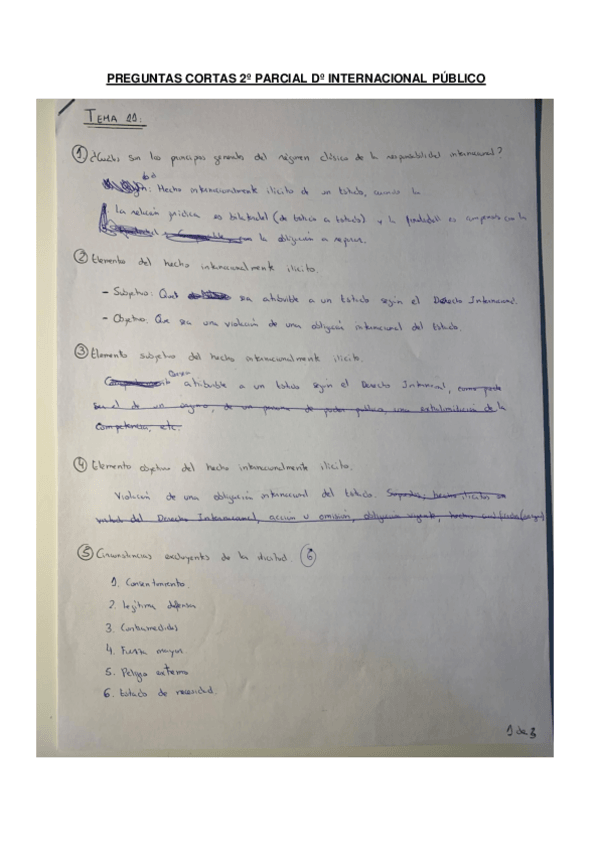 PREGUNTAS CORTAS 2º PARCIAL Dº INTERNACIONAL PÚBLICO
TEMA 11:
① ¿Cuáles son los principios generales del régimen clásico de la responsabilidad internacional?
: Hecho internacionalmente ilícito de un Estado, cuando la
La relación jurídica es bilateral (de Estado a Estado) y la finalidad es compensar con la
la obligación de reparar.
② Elementos del hecho internacionalmente ilícito.
- Subjetivo: Que sea atribuible a un Estado según el Derecho Internacional.
- Objetivo. Que sea una violación de una obligación internacional del Estado.
③ Elemento subjetivo del hecho internacionalmente ilícito.
atribuible a un Estado según el Derecho Internacional, como puede
ser el de un órgano, de una persona de poder público, una extralimitación de la
competencia, etc.
④ Elemento objetivo del hecho internacionalmente ilícito.
Violación de una obligación internacional del Estado. hecho ilícito en
virtud del Derecho Internacional, acción u omisión, obligación vigente, hecho
⑤ Circunstancias excluyentes de la ilicitud. ⑥
1. Consentimiento.
2. Legítima defensa
3. Contramedidas
4. Fuerza mayor.
5. Peligro extremo
6. Estado de necesidad.
1 de 3